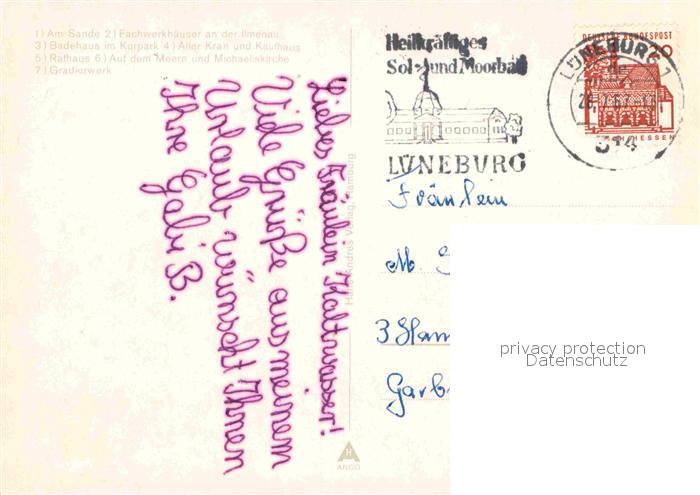 1) Am Sande 2) Fachwerkhäuser an der Ilmenau
3) Badehaus im Kurpark 4) Alter Kran und Kaufhaus
5) Rathaus 6) Auf dem Meere und Michaeliskirche
7) Gradierwerk
Liebes Fräulein Kaltwasser!
Viele Grüße aus meinem
Urlaub wünscht Ihnen
Ihre Gabi B.
Hans Andres Verlag, Hamburg
ANCO
Heilkräftiges
Sol- und Moorbad
LÜNEBURG
DEUTSCHE BUNDESPOST
20
LÜNEBURG 1
314
Fräulein
M
3 Han
Garb
privacy protection
Datenschutz